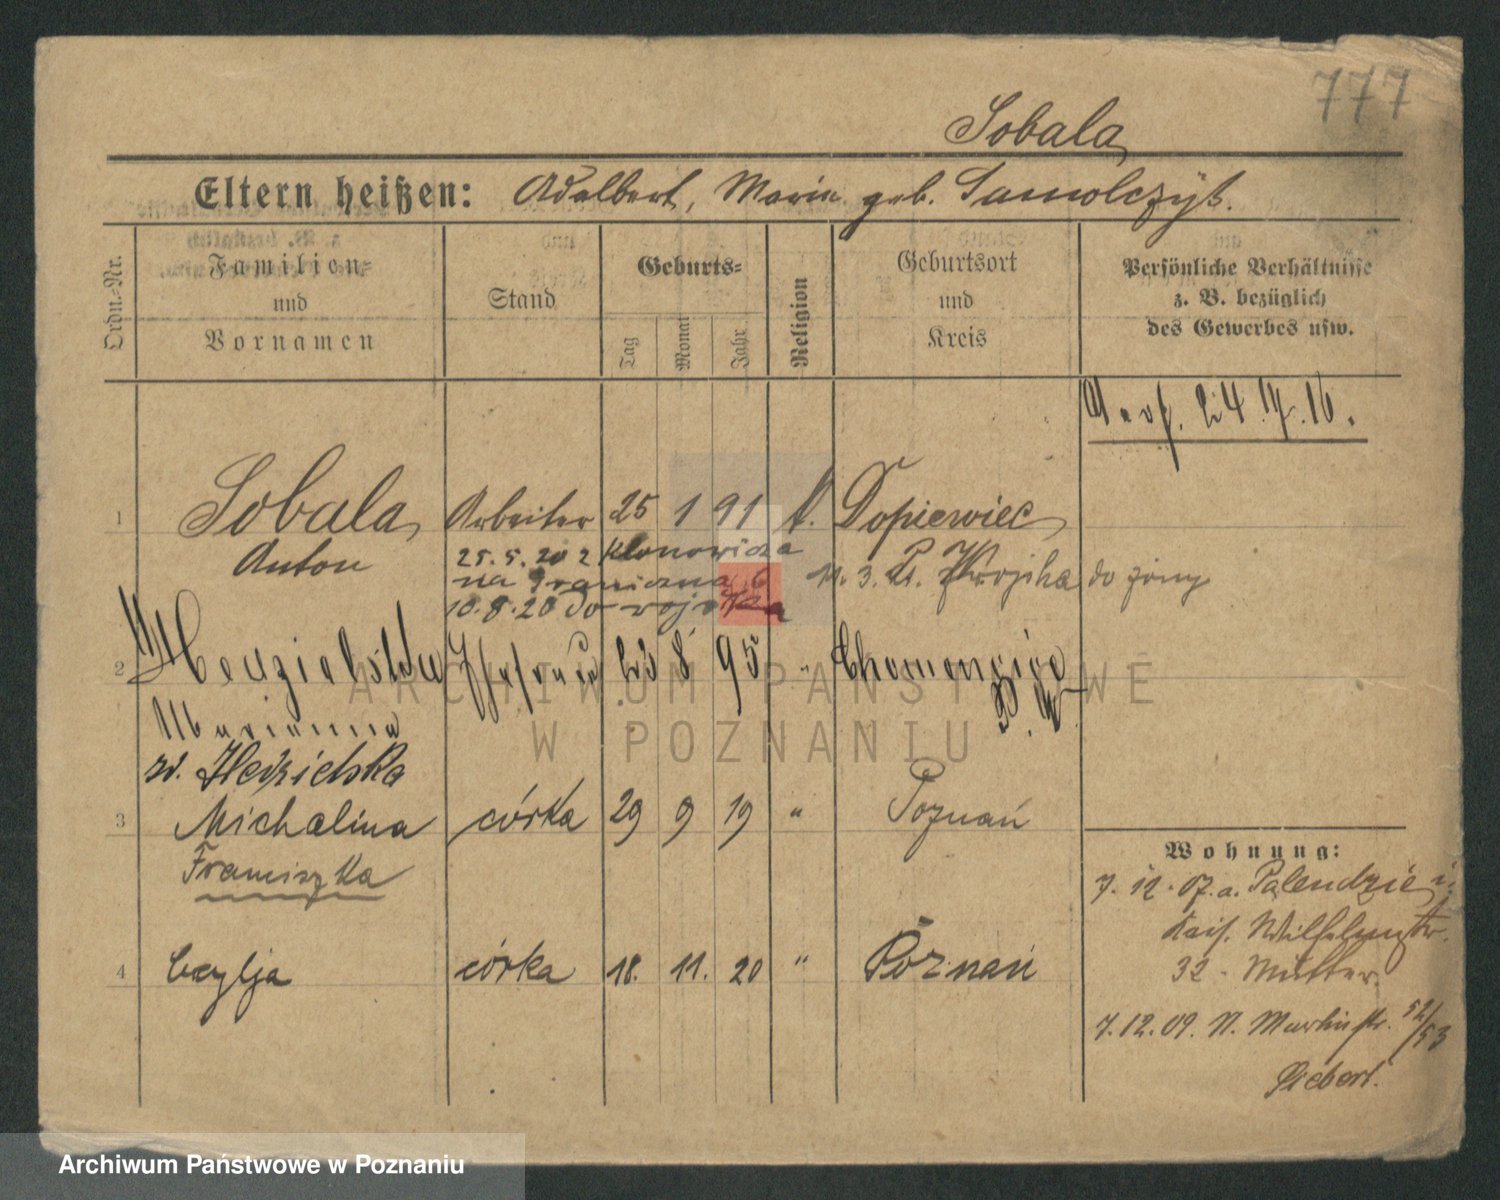 777
Sobala
Eltern heißen: Adalbert, Maria geb. Samolczyk.
Ordn.-Nr.
Familien-
und
Vornamen
Stand
Geburts-
Tag
Monat
Jahr
Religion
Geburtsort
und
Kreis
Persönliche Verhältnisse
z. B. bezüglich
des Gewerbes usw.
1 Sobala Arbeiter 25 1 91 k. Dopiewiec
Anton
25.5.20 2 Klonowicza
na Graniczna 6
10.8.20 do wojska
11. 3. 21. z Wojska do żony
2 Ehefrau 23 8 95 " Chomencice
P. W.
Marianna
Michalina
3 córka 29 9 19 " Poznań
Franciszka
4 Cecylja córka 18. 11. 20 " Poznań
Wohnung:
7. 12. 07. a. Palendzie
Kais. Wilhelmstr.
32 - Mutter.
7. 12. 09. N. Martinstr. 52/53
Siebert.
ARCHIWUM PAŃSTWOWE
W POZNANIU
Archiwum Państwowe w Poznaniu